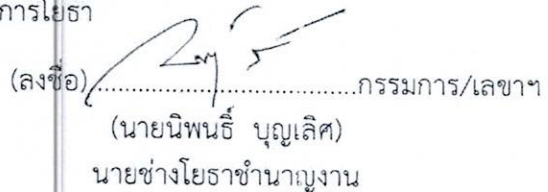 การโยธา
(ลงชื่อ)................................กรรมการ/เลขาฯ
(นายนิพนธิ์ บุญเลิศ)
นายช่างโยธาชำนาญงาน